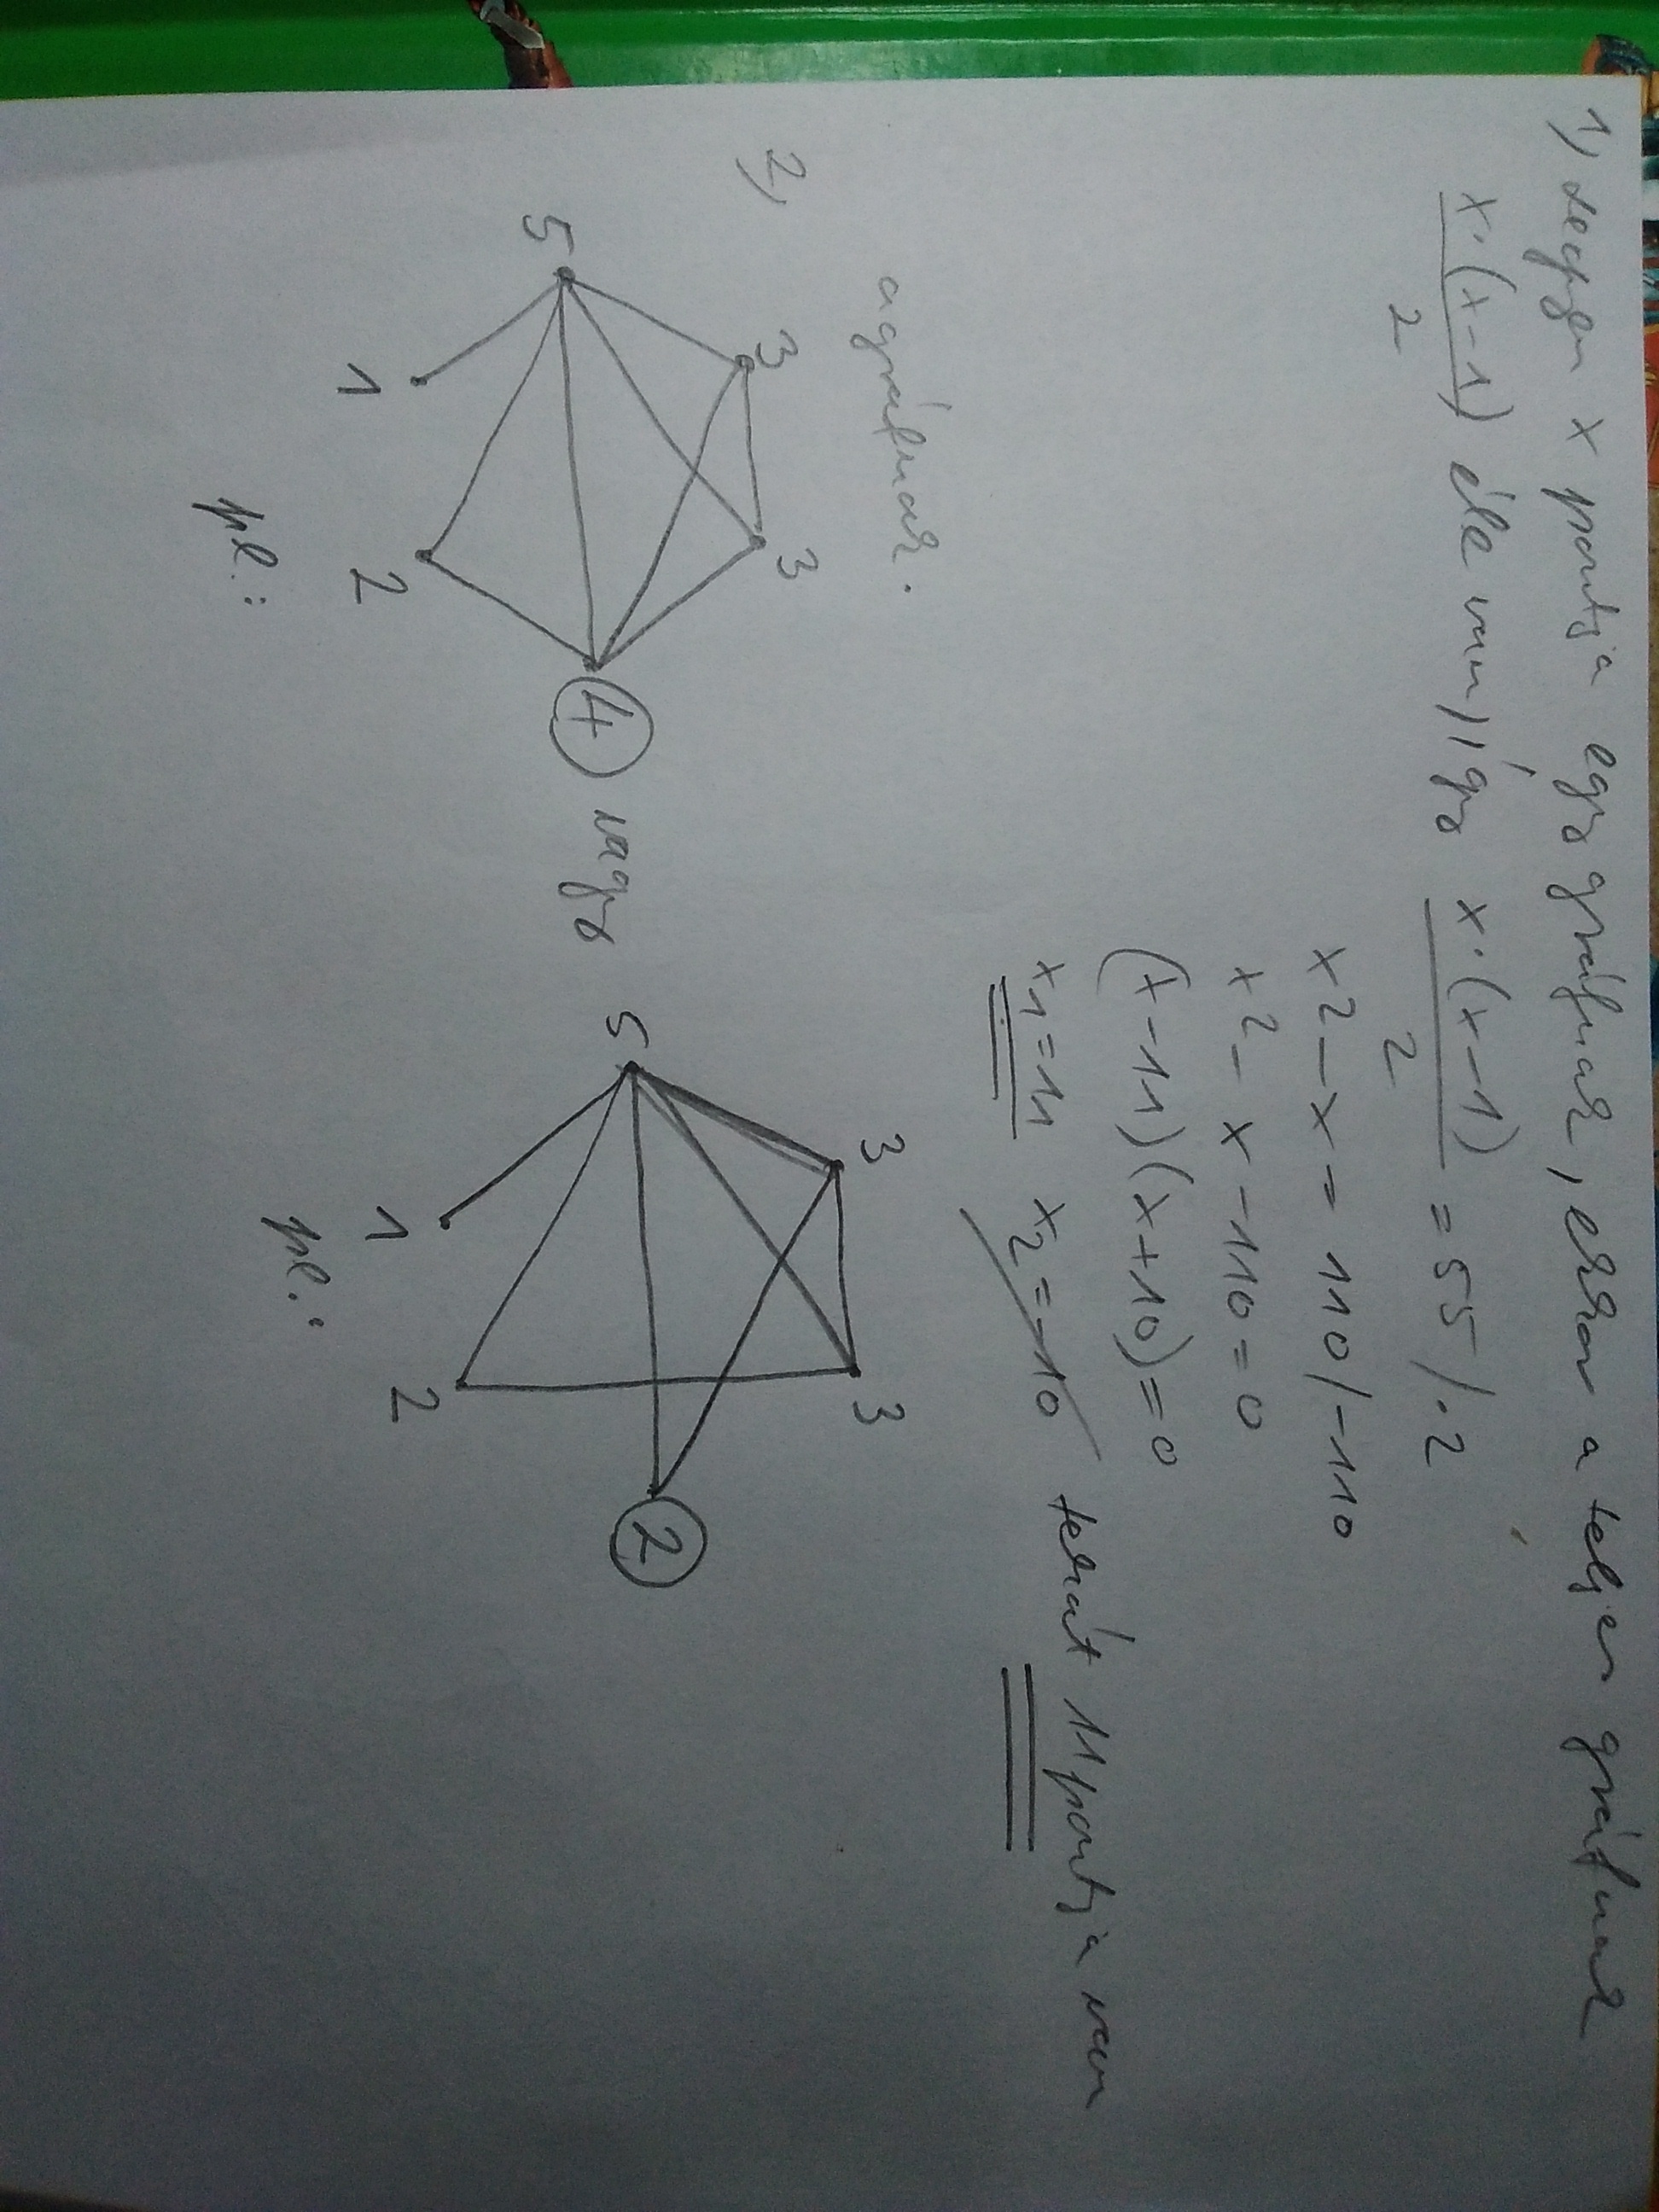 1, legyen x pontja egy gráfnak, ekkor a teljes gráfnak
x·(x-1)/2 éle van, így x·(x-1)/2 = 55 /·2
x² - x = 110 /-110
x² - x - 110 = 0
(x-11)(x+10) = 0
x₁=11 x₂=-10 tehát 11 pontja van
a gráfnak.
2,
3 3
5 4 vagy
1 2
pl.:
3 3
5 2
1 2
pl.: